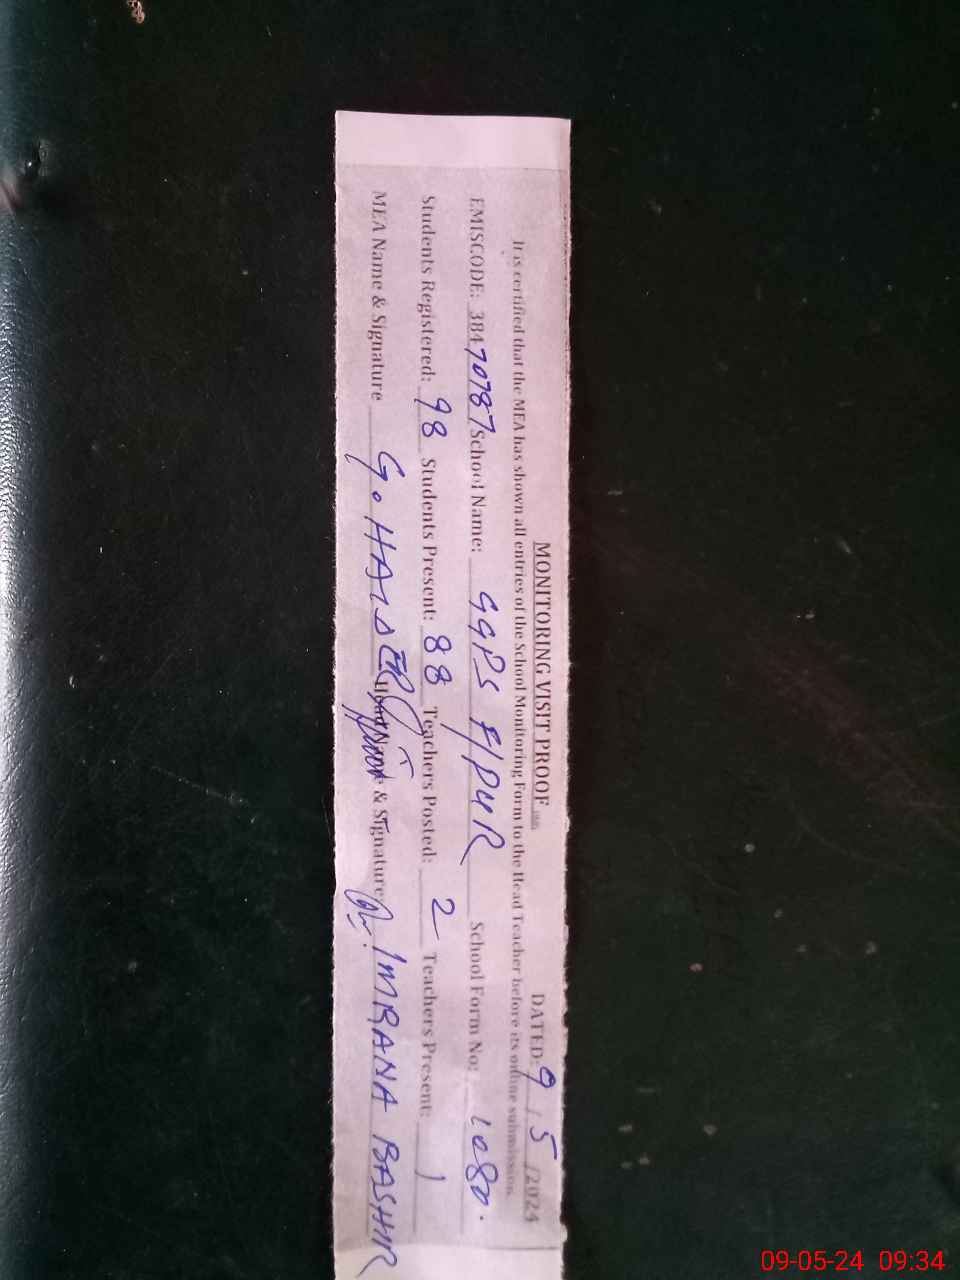 MONITORING VISIT PROOF DATED: 9 / 5 /2024
It is certified that the MEA has shown all entries of the School Monitoring Form to the Head Teacher before its online submission.
EMISCODE: 38470787 School Name: GGPS F/PUR School Form No: 1080.
Students Registered: 98 Students Present: 88 Teachers Posted: 2 Teachers Present: 1
MEA Name & Signature G. HAIDER Head Name & Signature IMRANA BASHIR
09-05-24 09:34